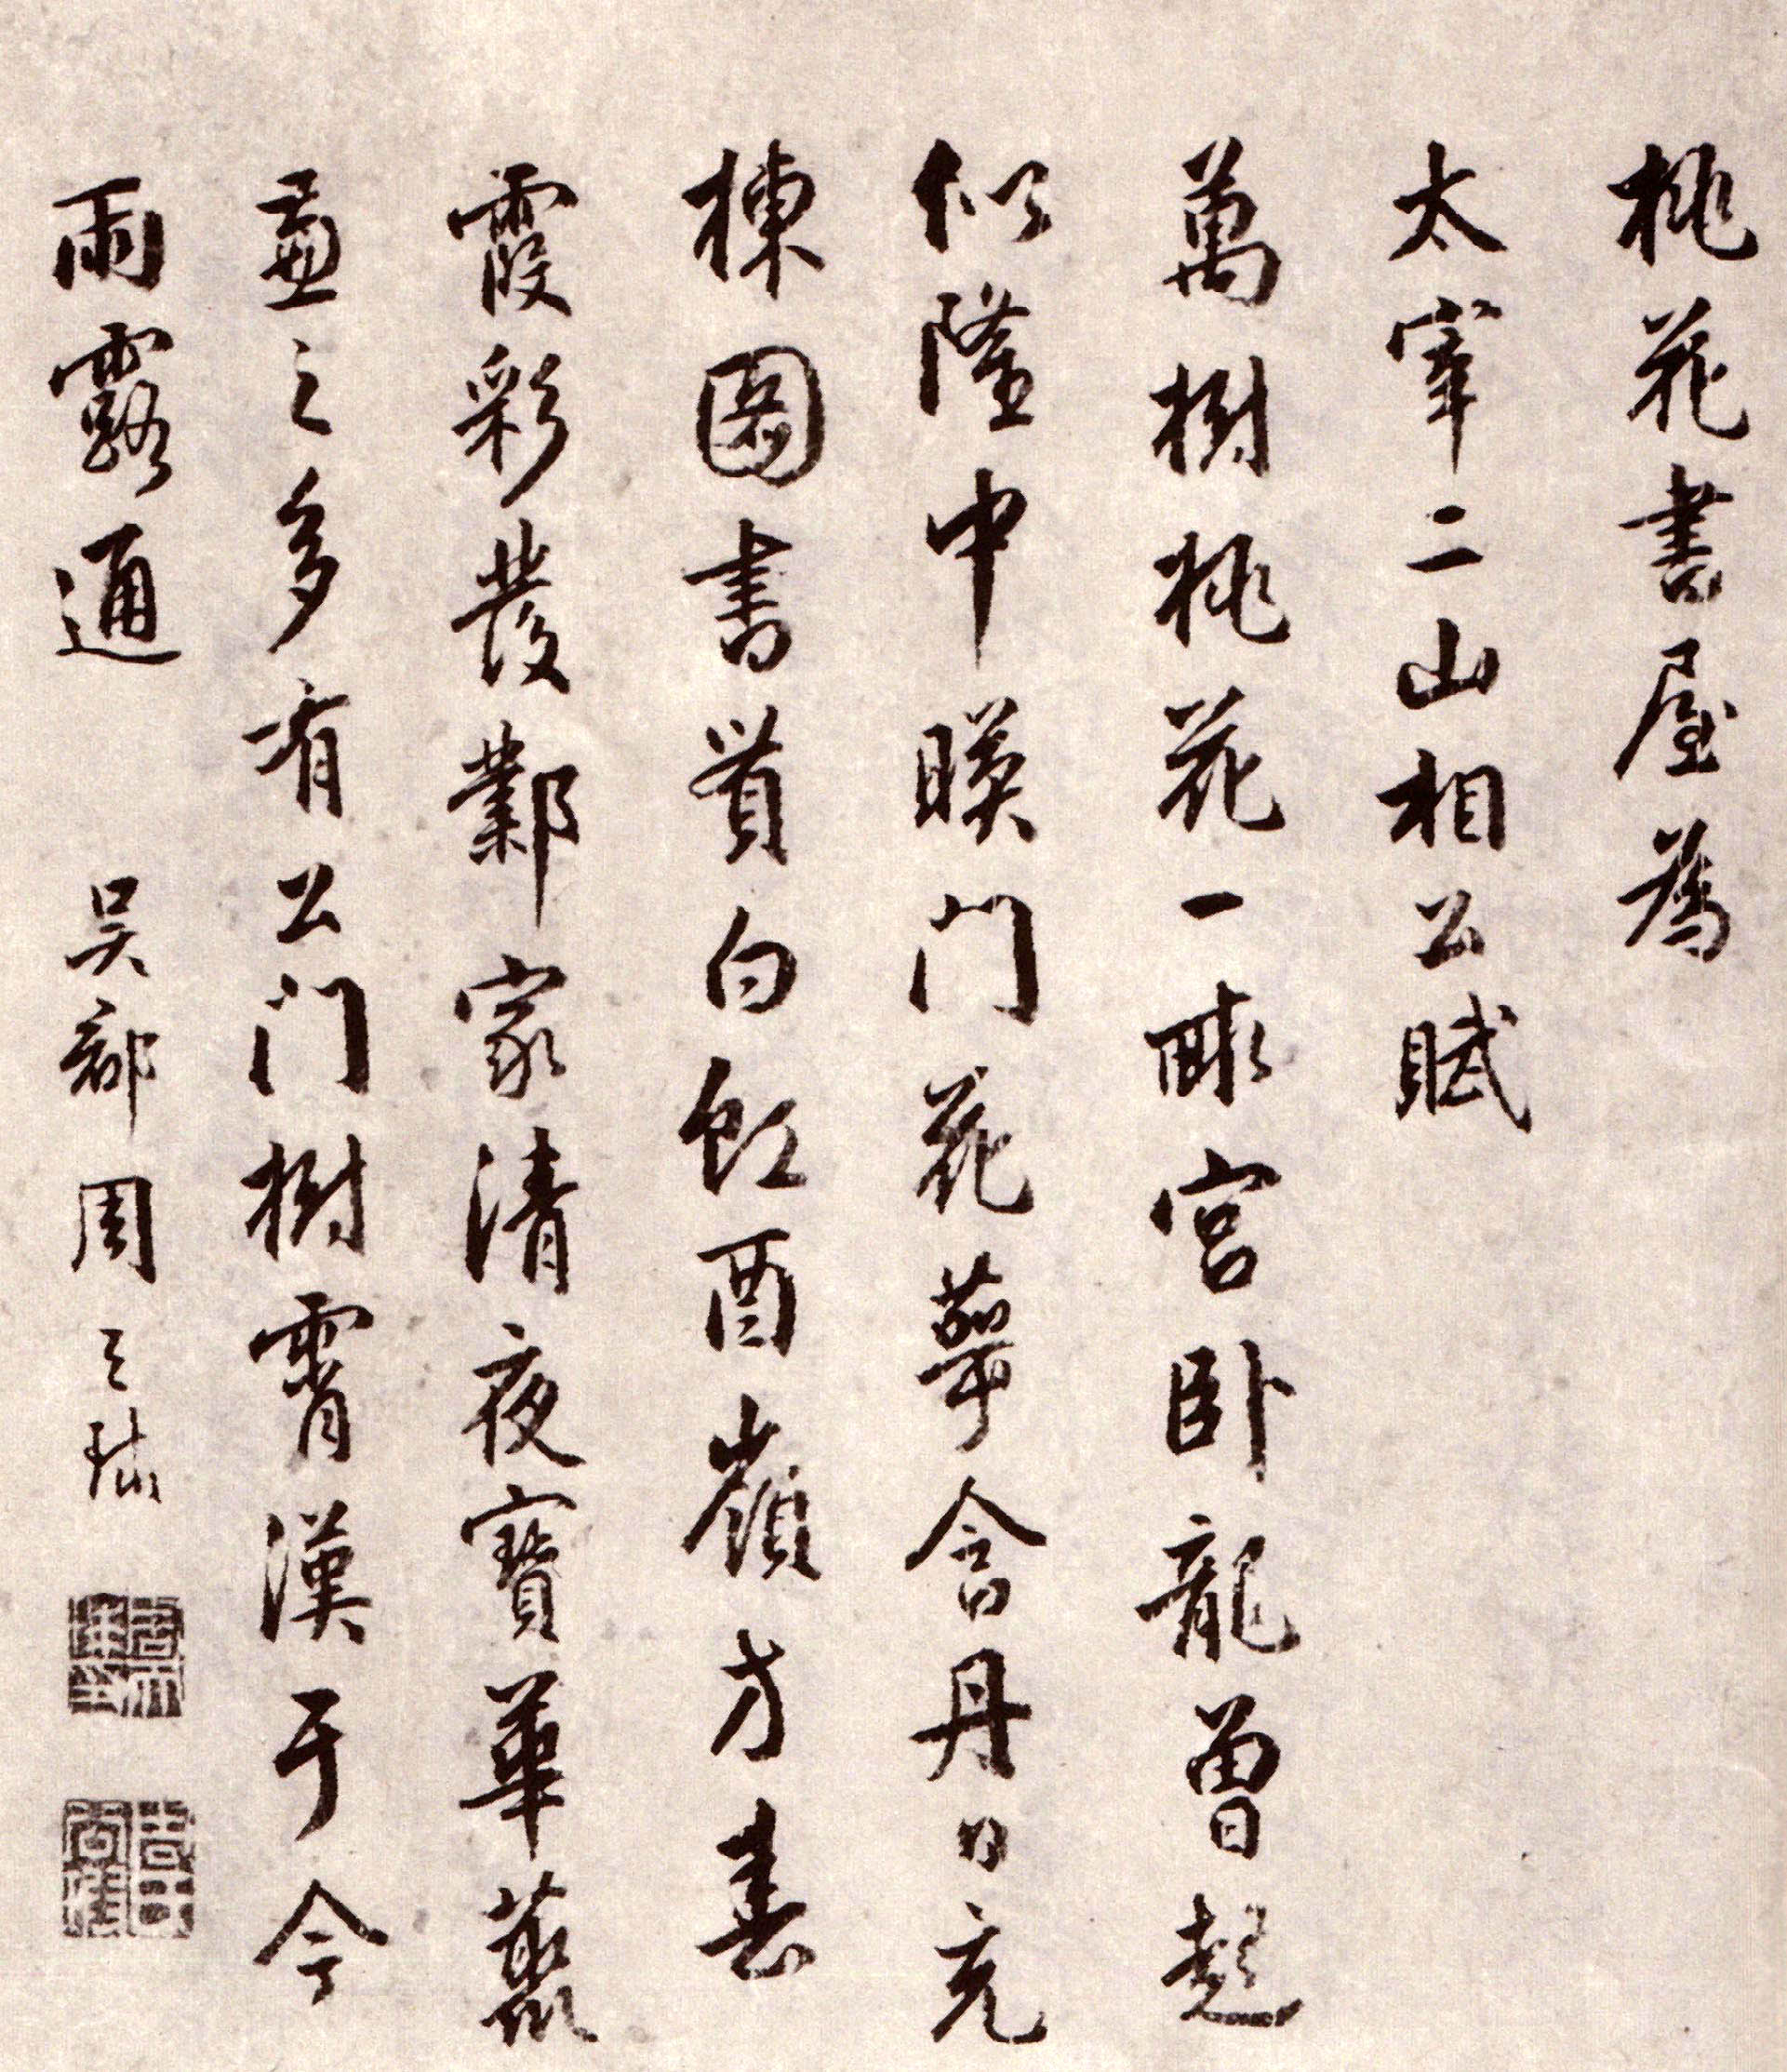 桃花書屋為
太宰二山相公賦
萬樹桃花一畝宮臥龍曾起
似隆中暎門花萼含丹日充
棟圖書貫白虹酉嶺方春
霞彩發鄴家清夜寶華叢
盡之多有公門樹霄漢于今
雨露通
吳郡周天球